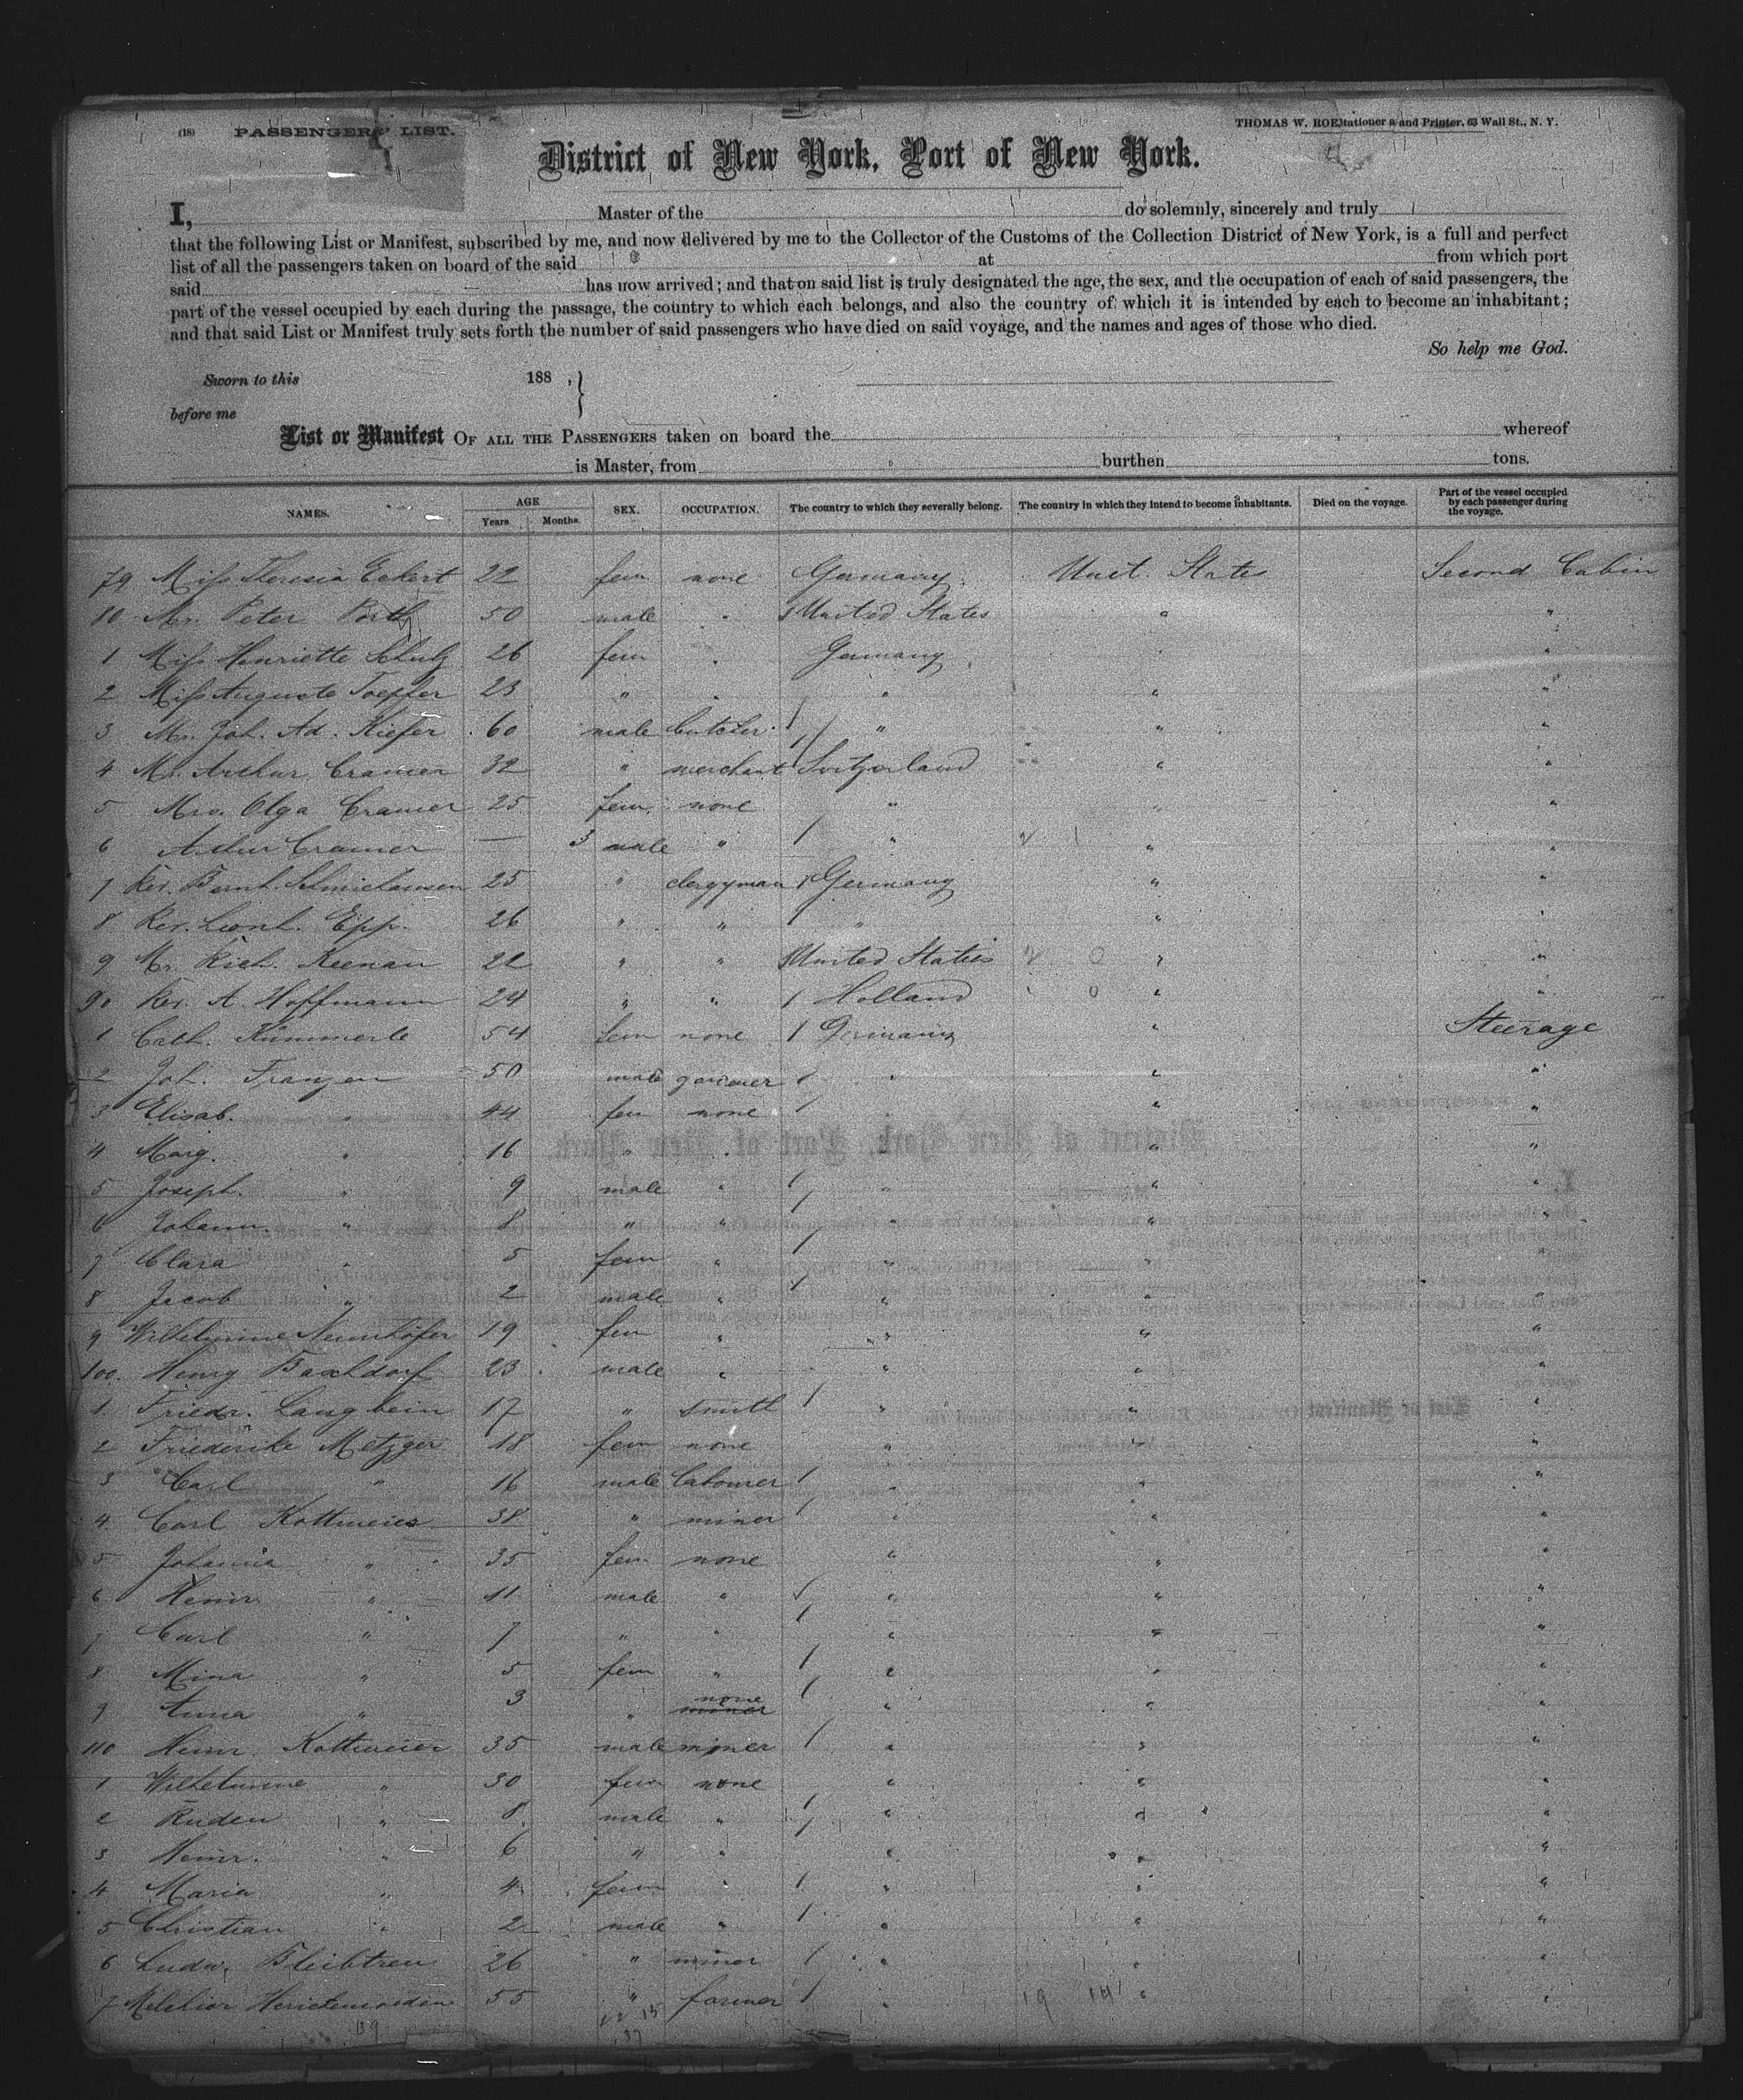 (18) PASSENGERS' LIST. THOMAS W. ROE, Stationer and Printer, 63 Wall St., N. Y.
District of New York, Port of New York.
I, Master of the do solemnly, sincerely and truly
that the following List or Manifest, subscribed by me, and now delivered by me to the Collector of the Customs of the Collection District of New York, is a full and perfect
list of all the passengers taken on board of the said at from which port
said has now arrived; and that on said list is truly designated the age, the sex, and the occupation of each of said passengers, the
part of the vessel occupied by each during the passage, the country to which each belongs, and also the country of which it is intended by each to become an inhabitant;
and that said List or Manifest truly sets forth the number of said passengers who have died on said voyage, and the names and ages of those who died.
So help me God.
Sworn to this 188 , }
before me
List or Manifest OF ALL THE PASSENGERS taken on board the whereof
is Master, from burthen tons.
NAMES. AGE Years. Months. SEX. OCCUPATION. The country to which they severally belong. The country in which they intend to become inhabitants. Died on the voyage. Part of the vessel occupied by each passenger during the voyage.
79 Miss Theresia Eckert 22 fem none Germany Unit. States Second Cabin
80 Mr. Peter 50 male " United States " "
1 Miss Henriette Schulz 26 fem " Germany " "
2 Miss Auguste Toepfer 23 " " " " "
3 Mr. Joh. Ad. Kiefer 60 male butcher 1 " " "
4 Mr. Arthur Cramer 32 " merchant 1 Switzerland " "
5 Mrs. Olga Cramer 25 fem. none " " "
6 Arthur Cramer — 3 male " 1 " " "
7 Rev. Bernh. 25 " clergyman 1 Germany " "
8 Rev. Leonh. Epp. 26 " " 1 " " "
9 Mr. Rich. Keenan 22 " " United States " "
90 Rev. A. Hoffmann 24 " " 1 Holland " "
1 Cath. Kümmerle 54 fem none 1 Germany " Steerage
2 Joh. Franzen 50 male 1 " " "
3 Elisab. " 44 fem none 1 " " "
4 Marg. " 16 " " " "
5 Joseph. " 9 male " 1 " " "
6 Johann. " 8 " " 1 " " "
7 Clara " 5 fem " 1 " " "
8 Jacob " 2 male " 1 " " "
9 Wilhelmine 19 fem " " " "
100. Henry 23 male " " " "
1. Friedr. Langbein 17 " smith 1 " " "
2 Friederike Metzger 18 fem none " " "
3 Carl " 16 male labourer 1 " " "
4 Carl Kottmeier 38 " miner 1 " " "
5 Johanna " 35 fem none " " "
6 Heinr. " 11 male " 1 " " "
7 Carl " 7 " " 1 " " "
8 Mina " 5 fem " 1 " " "
9 Anna " 3 " none 1 " " "
110 Heinr. Kottmeier 35 male miner 1 " " "
1 Wilhelmine " 30 fem none " " "
2 " 8 male " 1 " " "
3 Heinr. " 6 " " 1 " " "
4 Maria " 4 fem " 1 " " "
5 Christian " 2 male " 1 " " "
6 Ludw. Bleibtreu 26 " miner 1 " " "
7 Melchior 55 " farmer 1 " 19 14 " "